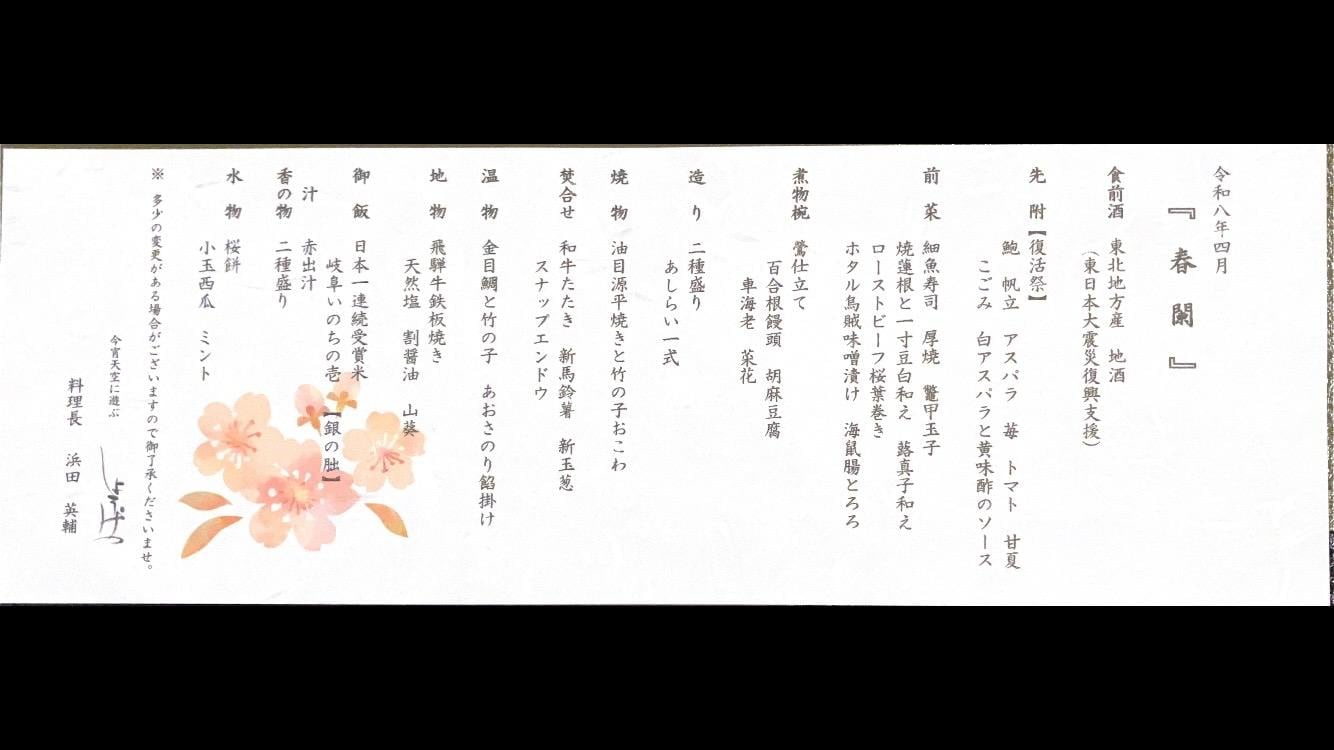 令和八年四月
『春闌』
食前酒 東北地方産 地酒
（東日本大震災復興支援）
先附【復活祭】
鮑 帆立 アスパラ 苺 トマト 甘夏
こごみ 白アスパラと黄味酢のソース
前菜 細魚寿司 厚焼 鼈甲玉子
焼蓮根と一寸豆白和え 蕗真子和え
ローストビーフ桜葉巻き
ホタル烏賊味噌漬け 海鼠腸とろろ
煮物椀 鶯仕立て
百合根饅頭 胡麻豆腐
車海老 菜花
造り 二種盛り
あしらい一式
焼物 油目源平焼きと竹の子おこわ
焚合せ 和牛たたき 新馬鈴薯 新玉葱
スナップエンドウ
温物 金目鯛と竹の子 あおさのり餡掛け
地物 飛騨牛鉄板焼き
天然塩 割醤油 山葵
御飯 日本一連続受賞米
岐阜いのちの壱 【銀の朏】
汁 赤出汁
香の物 二種盛り
水物 桜餅
小玉西瓜 ミント
※ 多少の変更がある場合がございますので御了承くださいませ。
今宵天空に遊ぶ
しょうげつ
料理長 浜田 英輔